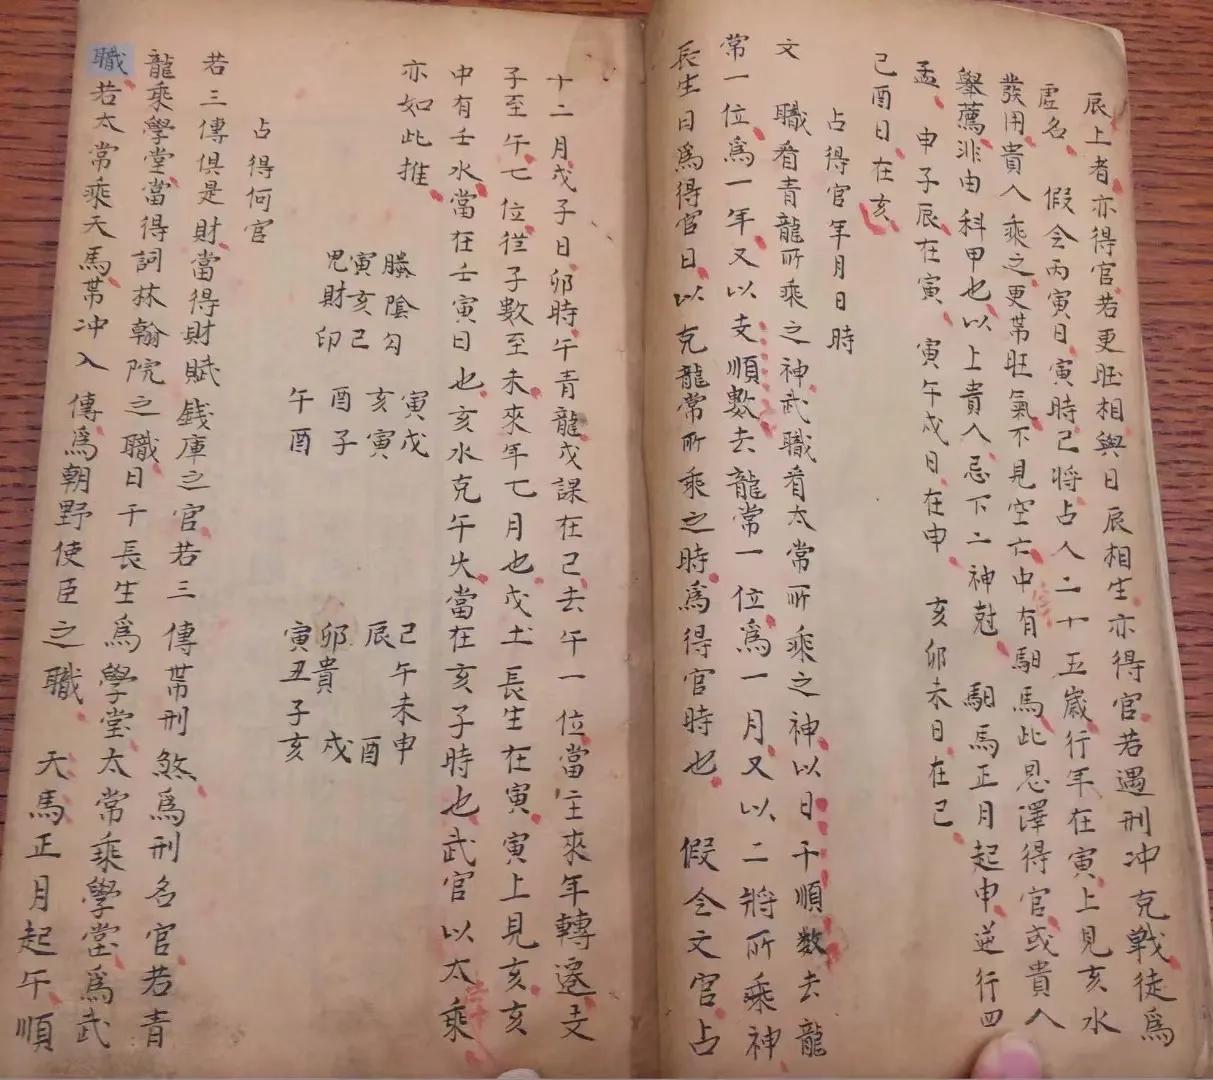 辰上者亦得官若更旺相與日辰相生亦得官若遇刑冲克戰徒為
虛名 假令丙寅日寅時巳將占人二十五歲行年在寅上見亥水
發用貴人乘之更帯旺氣不見空亡中有馹馬此恩澤得官或貴人
舉薦非由科甲也以上貴人忌下二神尅 馹馬正月起申逆行四
孟 申子辰在寅 寅午戌日在申 亥卯未日在巳
巳酉日在亥
占得官年月日時
文 職看青龍所乘之神武職看太常所乘之神以日干順数去龍
常一位為一年又以支順數去龍常一位為一月又以二將所乘神
長生日為得官日以克龍常所乘之時為得官時也 假令文官占
十二月戊子日卯時午青龍戊課在巳去午一位當主來年轉遷支
子至午七位従子數至未來年七月也戊土長生在寅寅上見亥亥
中有壬水當在壬寅日也亥水克午火當在亥子時也武官以太乘
亦如此推
螣陰勾
寅亥己
鬼財印
寅戊
亥寅
酉子
午酉
巳午未申
辰 酉
卯貴 戌
寅丑子亥
占得何官
若三傳俱是財當得財賦銭庫之官若三傳帯刑煞為刑名官若青
龍乘學堂當得詞林翰院之職日干長生為學堂太常乘學堂為武
職若太常乘天馬帯冲入傳為朝野使臣之職 天馬正月起午順